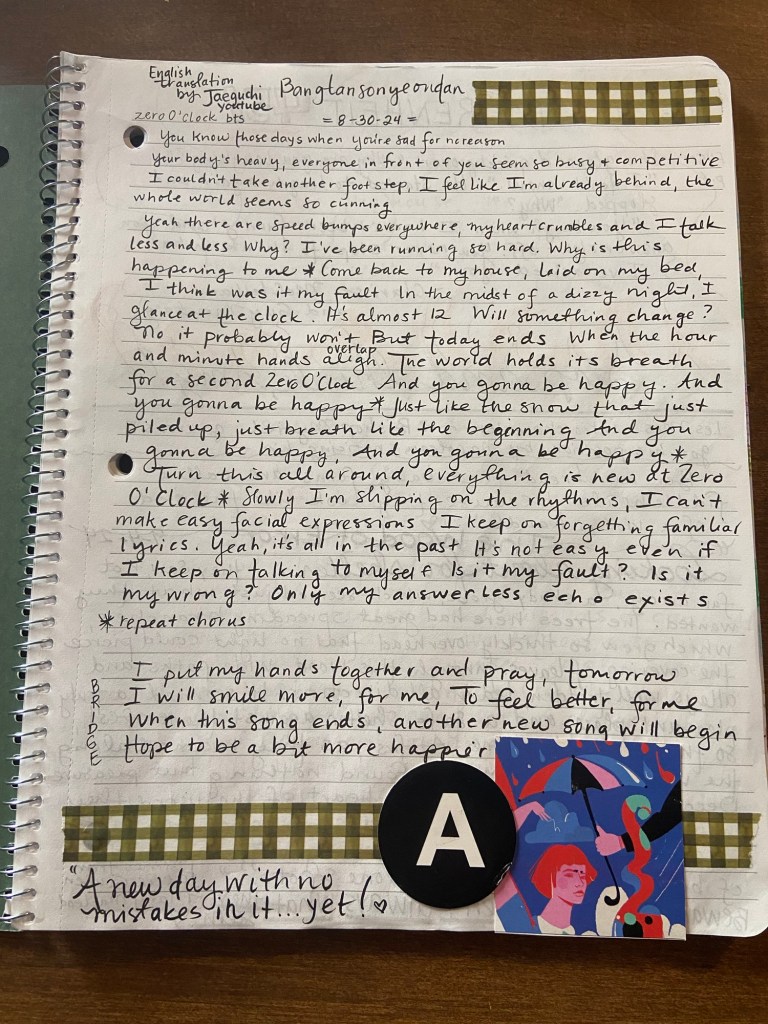 English
translation
by Jaeguchi
youtube
Bangtansonyeondan
zero O'Clock bts
= 8-30-24 =
You know those days when you're sad for no reason
Your body's heavy, everyone in front of you seem so busy + competitive
I couldn't take another foot step, I feel like I'm already behind, the
whole world seems so cunning
Yeah there are speed bumps everywhere, my heart crumbles and I talk
less and less Why? I've been running so hard. Why is this
happening to me * Come back to my house, laid on my bed,
I think was it my fault In the midst of a dizzy night, I
glance at the clock. It's almost 12 Will something change?
No it probably won't But today ends When the hour
and minute hands align. overlap The world holds its breath
for a second Zero O'Clock And you gonna be happy. And
you gonna be happy * Just like the snow that just
piled up, just breath like the beginning And you
gonna be happy, And you gonna be happy *
Turn this all around, everything is new at Zero
O'Clock * Slowly I'm slipping on the rhythms, I can't
make easy facial expressions I keep on forgetting familiar
lyrics. Yeah, it's all in the past It's not easy even if
I keep on talking to myself Is it my fault? Is it
my wrong? Only my answerless echo exists
* repeat chorus
BRIDGE
I put my hands together and pray, tomorrow
I will smile more, for me, To feel better, for me
When this song ends, another new song will begin
Hope to be a bit more happier
A
"A new day with no
mistakes in it...yet! ♡